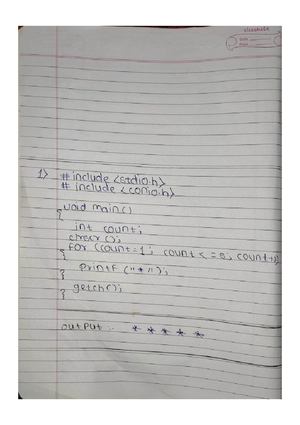 1) #include <stdio.h>
# include <conio.h>
void main()
{
int count;
clrscr();
for (count=1; count<= 5; count++)
{
printf ("*");
}
getch();
}
output :- * * * * *